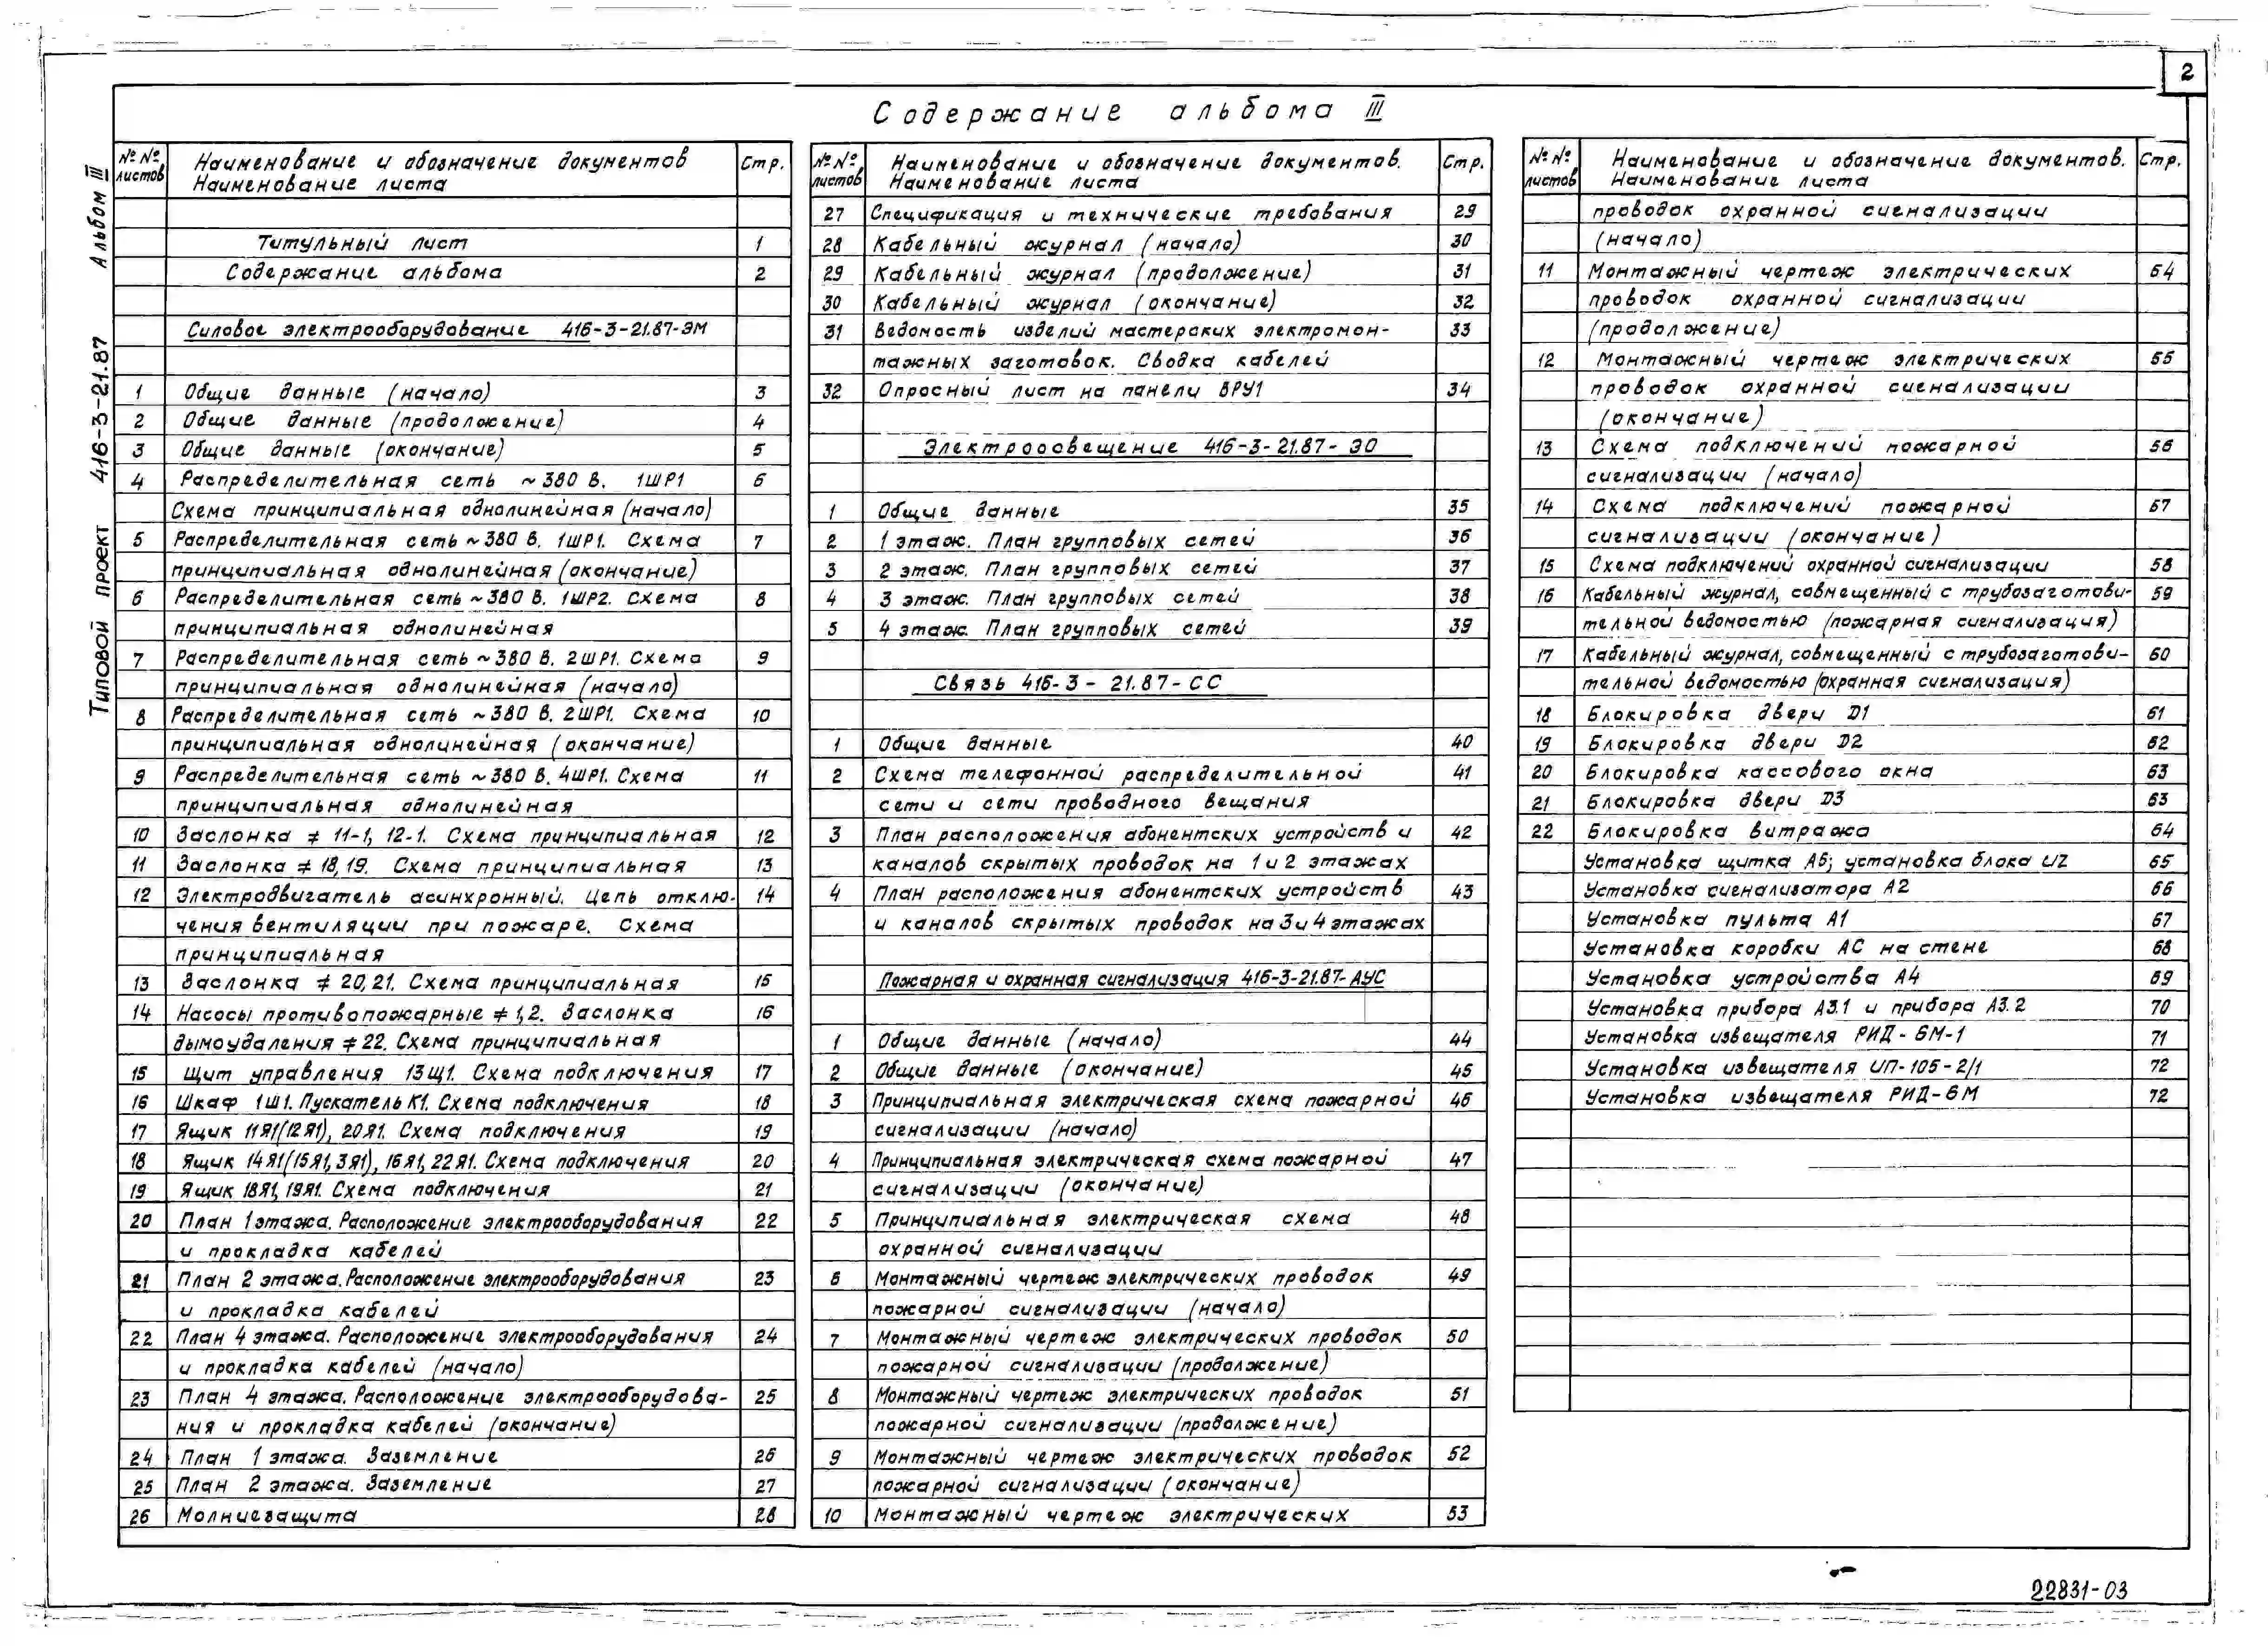 2
Содержание альбома III
Типовой проект 416-3-21.87 Альбом III
№№ листов
Наименование и обозначение документов
Наименование листа
Стр.
Титульный лист 1
Содержание альбома 2
Силовое электрооборудование 416-3-21.87-ЭМ
1 Общие данные (начало) 3
2 Общие данные (продолжение) 4
3 Общие данные (окончание) 5
4 Распределительная сеть ~380 В. 1ШР1 6
Схема принципиальная однолинейная (начало)
5 Распределительная сеть ~380 В. 1ШР1. Схема 7
принципиальная однолинейная (окончание)
6 Распределительная сеть ~380 В. 1ШР2. Схема 8
принципиальная однолинейная
7 Распределительная сеть ~380 В. 2ШР1. Схема 9
принципиальная однолинейная (начало)
8 Распределительная сеть ~380 В. 2ШР1. Схема 10
принципиальная однолинейная (окончание)
9 Распределительная сеть ~380 В. 4ШР1. Схема 11
принципиальная однолинейная
10 Заслонка ≠ 11-1, 12-1. Схема принципиальная 12
11 Заслонка ≠ 18,19. Схема принципиальная 13
12 Электродвигатель асинхронный. Цепь отклю- 14
чения вентиляции при пожаре. Схема
принципиальная
13 Заслонка ≠ 20,21. Схема принципиальная 15
14 Насосы противопожарные ≠ 1,2. Заслонка 16
дымоудаления ≠ 22. Схема принципиальная
15 Щит управления 13Щ1. Схема подключения 17
16 Шкаф 1Ш1. Пускатель К1. Схема подключения 18
17 Ящик 11Я1(12Я1), 20Я1. Схема подключения 19
18 Ящик 14Я1(15Я1,3Я1), 16Я1, 22Я1. Схема подключения 20
19 Ящик 18Я1, 19Я1. Схема подключения 21
20 План 1 этажа. Расположение электрооборудования 22
и прокладка кабелей
21 План 2 этажа. Расположение электрооборудования 23
и прокладка кабелей
22 План 4 этажа. Расположение электрооборудования 24
и прокладка кабелей (начало)
23 План 4 этажа. Расположение электрооборудова- 25
ния и прокладка кабелей (окончание)
24 План 1 этажа. Заземление 26
25 План 2 этажа. Заземление 27
26 Молниезащита 28
№№ листов
Наименование и обозначение документов.
Наименование листа
Стр.
27 Спецификация и технические требования 29
28 Кабельный журнал (начало) 30
29 Кабельный журнал (продолжение) 31
30 Кабельный журнал (окончание) 32
31 Ведомость изделий мастерских электромон- 33
тажных заготовок. Сводка кабелей
32 Опросный лист на панели ВРУ1 34
Электроосвещение 416-3-21.87-ЭО
1 Общие данные 35
2 1 этаж. План групповых сетей 36
3 2 этаж. План групповых сетей 37
4 3 этаж. План групповых сетей 38
5 4 этаж. План групповых сетей 39
Связь 416-3-21.87-СС
1 Общие данные 40
2 Схема телефонной распределительной 41
сети и сети проводного вещания
3 План расположения абонентских устройств и 42
каналов скрытых проводок на 1 и 2 этажах
4 План расположения абонентских устройств 43
и каналов скрытых проводок на 3 и 4 этажах
Пожарная и охранная сигнализация 416-3-21.87-АУС
1 Общие данные (начало) 44
2 Общие данные (окончание) 45
3 Принципиальная электрическая схема пожарной 46
сигнализации (начало)
4 Принципиальная электрическая схема пожарной 47
сигнализации (окончание)
5 Принципиальная электрическая схема 48
охранной сигнализации
6 Монтажный чертеж электрических проводок 49
пожарной сигнализации (начало)
7 Монтажный чертеж электрических проводок 50
пожарной сигнализации (продолжение)
8 Монтажный чертеж электрических проводок 51
пожарной сигнализации (продолжение)
9 Монтажный чертеж электрических проводок 52
пожарной сигнализации (окончание)
10 Монтажный чертеж электрических 53
№№ листов
Наименование и обозначение документов.
Наименование листа
Стр.
проводок охранной сигнализации
(начало)
11 Монтажный чертеж электрических 54
проводок охранной сигнализации
(продолжение)
12 Монтажный чертеж электрических 55
проводок охранной сигнализации
(окончание)
13 Схема подключений пожарной 56
сигнализации (начало)
14 Схема подключений пожарной 57
сигнализации (окончание)
15 Схема подключений охранной сигнализации 58
16 Кабельный журнал, совмещенный с трубозаготови- 59
тельной ведомостью (пожарная сигнализация)
17 Кабельный журнал, совмещенный с трубозаготови- 60
тельной ведомостью (охранная сигнализация)
18 Блокировка двери D1 61
19 Блокировка двери D2 62
20 Блокировка кассового окна 63
21 Блокировка двери D3 63
22 Блокировка витража 64
Установка щитка А5; установка блока UZ 65
Установка сигнализатора А2 66
Установка пульта А1 67
Установка коробки АС на стене 68
Установка устройства А4 69
Установка прибора А3.1 и прибора А3.2 70
Установка извещателя РИД-6М-1 71
Установка извещателя ИП-105-2/1 72
Установка извещателя РИД-6М 72
22831-03